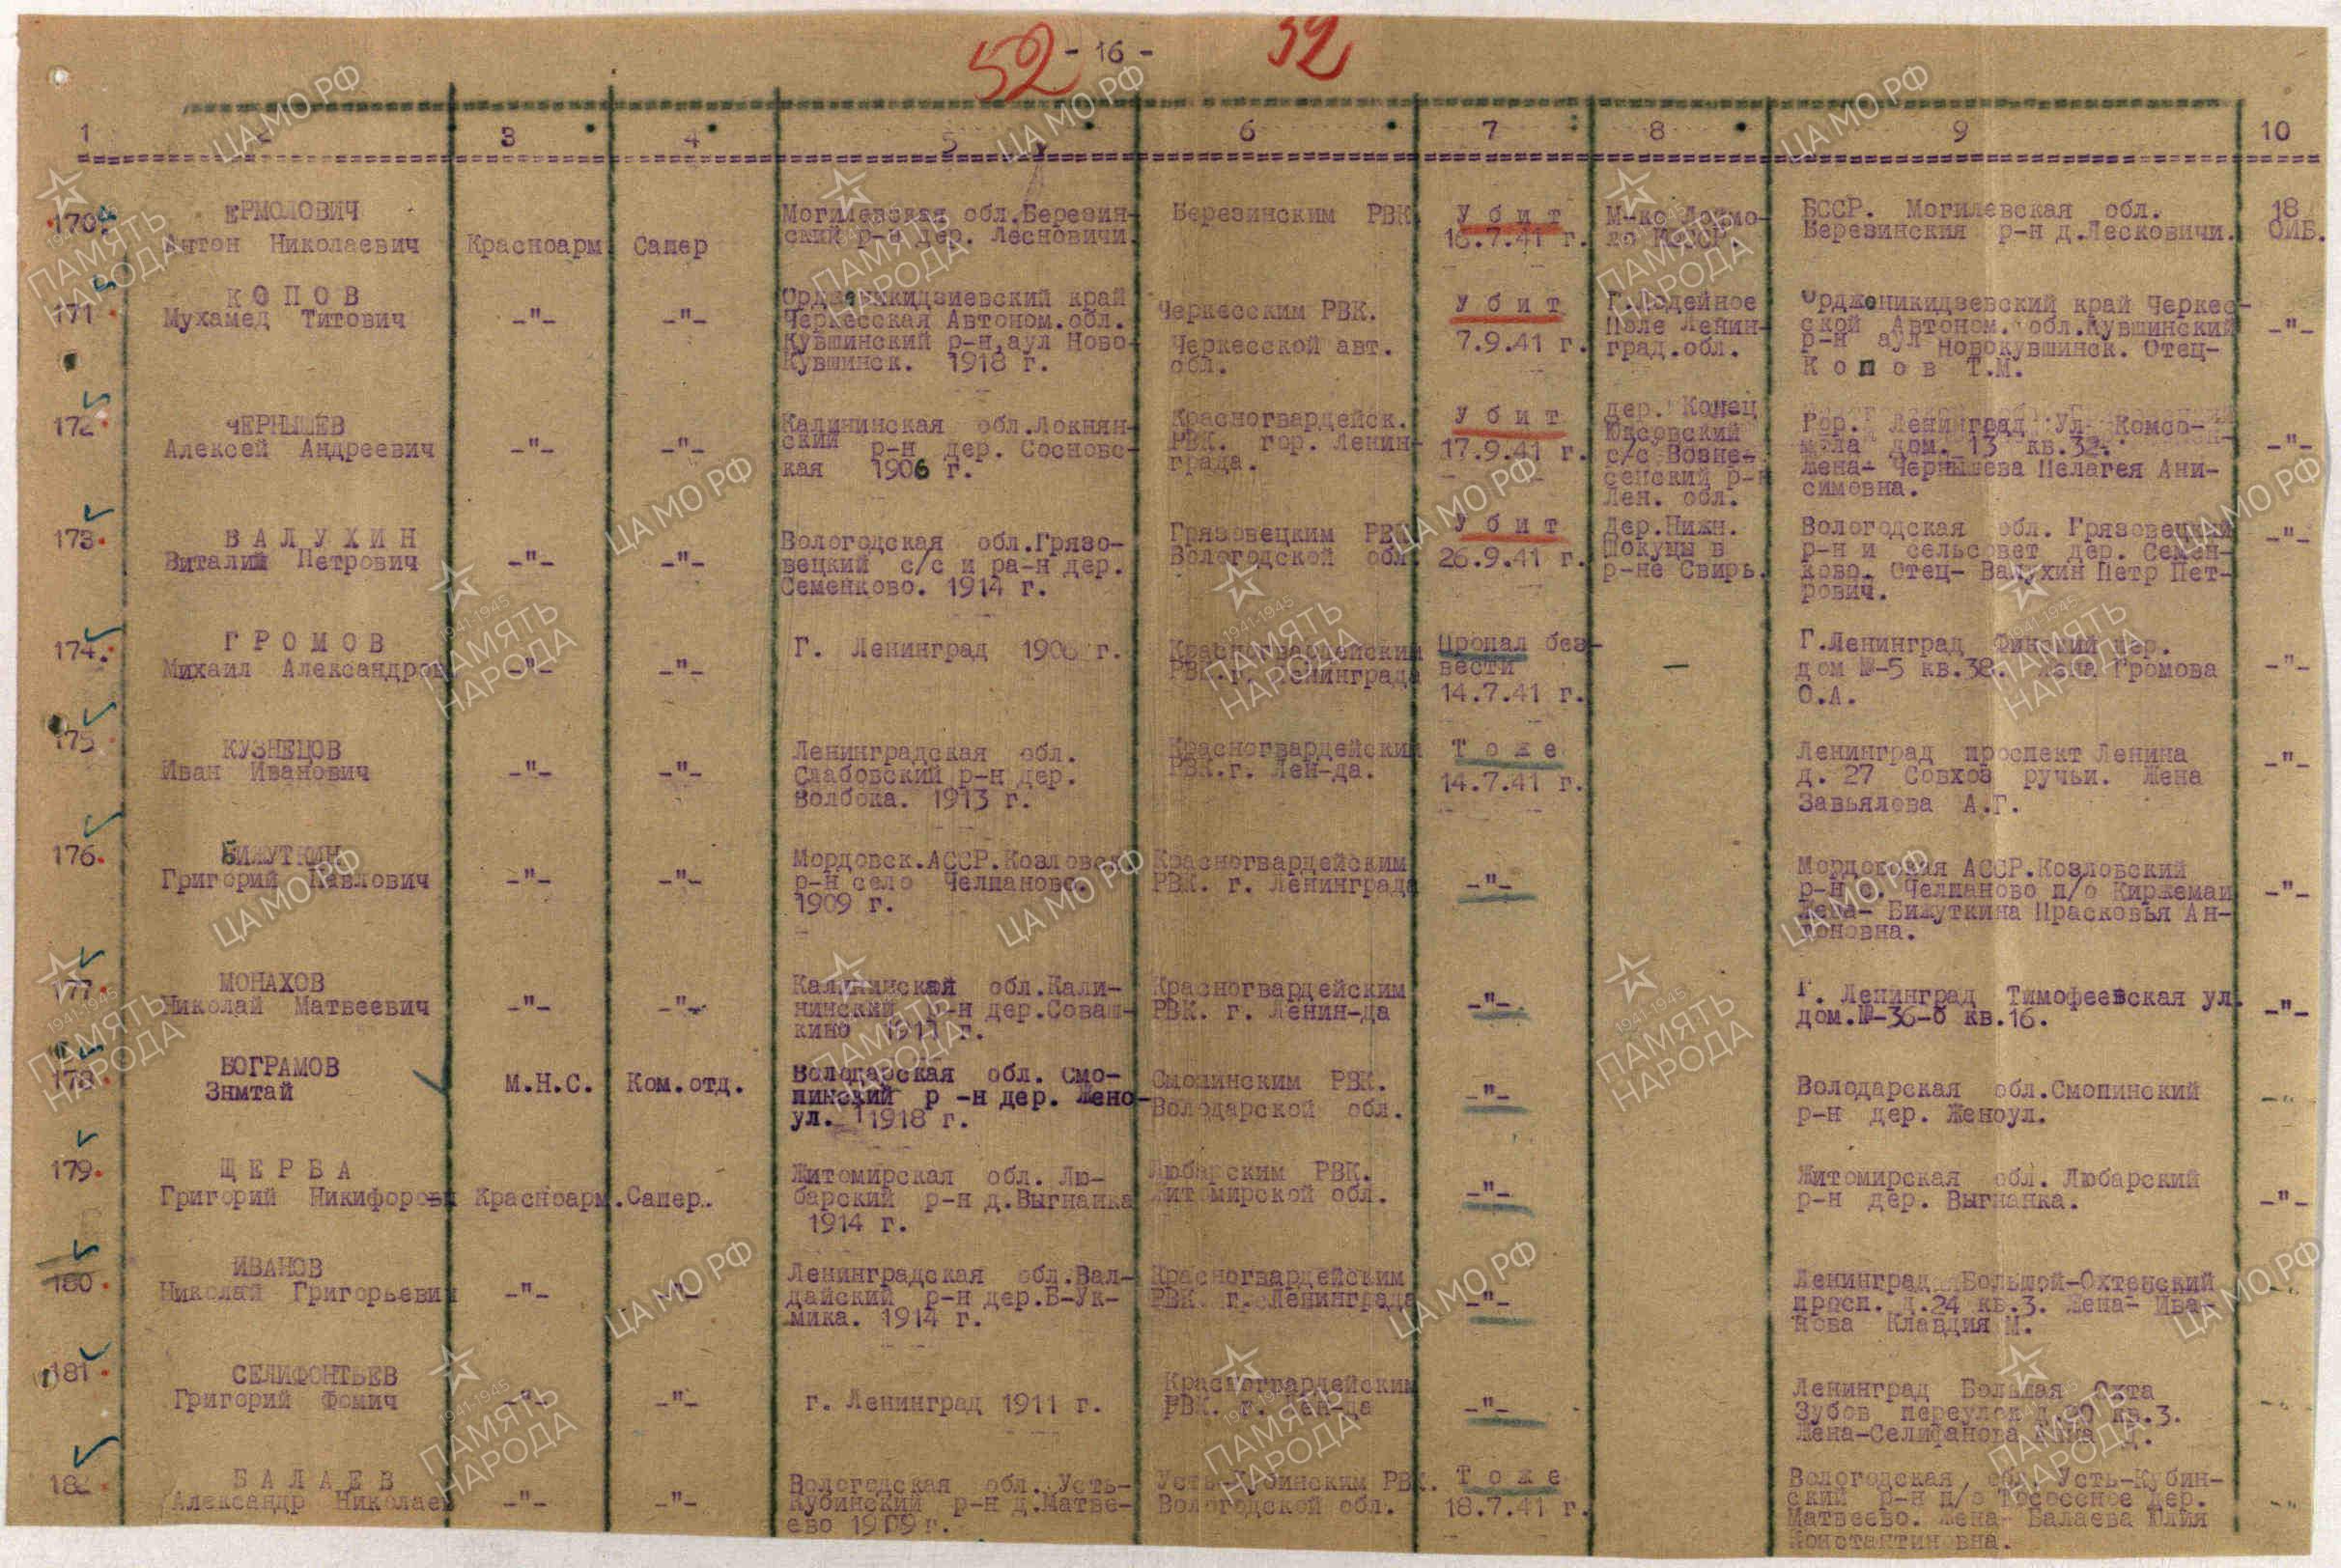 52 - 16 - 52
1 2 3 4 5 6 7 8 9 10
170. ЕРМОЛОВИЧ
Антон Николаевич Красноарм Сапер
Могилевская обл.Березин-
ский р-н дер. Лесновичи.
Березинским РВК
Убит
16.7.41 г.
М-ко Лоймо-
ло КФССР.
БССР. Могилевская обл.
Березинский р-н д.Лесковичи.
18
ОИБ.
171. КОПОВ
Мухамед Титович -"- -"-
Орджоникидзиевский край
Черкесская Автоном.обл.
Кувшинский р-н,аул Ново-
Кувшинск. 1918 г.
Черкесским РВК.
Черкесской авт.
обл.
Убит
7.9.41 г.
Г.Лодейное
Поле Ленин-
град.обл.
Орджоникидзевский край Черкес-
ской Автоном. обл.Кувшинский
р-н аул Новокувшинск. Отец-
Копов Т.М.
-"-
172. ЧЕРНЫШЕВ
Алексей Андреевич -"- -"-
Калининская обл.Локнян-
ский р-н дер. Сосновс-
кая 1906 г.
Красногвардейск.
РВК. гор. Ленин-
града.
Убит
17.9.41 г.
дер. Конец
Юксовский
с/с Возне-
сенский р-н
Лен. обл.
Гор. Ленинград Ул. Комсо-
мола дом. 13 кв.32.
Жена- Чернышева Пелагея Ани-
симовна.
-"-
173. ВАЛУХИН
Виталий Петрович -"- -"-
Вологодская обл.Грязо-
вецкий с/с и ра-н дер.
Семенково. 1914 г.
Грязовецким РВК
Вологодской обл.
Убит
26.9.41 г.
Дер.Нижн.
Шокуцы в
р-не Свирь.
Вологодская обл. Грязовецкий
р-н и сельсовет дер. Семен-
ково. Отец- Валухин Петр Пет-
рович.
-"-
174. ГРОМОВ
Михаил Александров -"- -"-
Г. Ленинград 1906 г.
Красногвардейским
РВК.г. Ленинграда
Пропал без-
вести
14.7.41 г.
—
Г.Ленинград Финский пер.
дом №-5 кв.38. Жена Громова
О.А.
-"-
175. КУЗНЕЦОВ
Иван Иванович -"- -"-
Ленинградская обл.
Слабовский р-н дер.
Волбока. 1913 г.
Красногвардейским
РВК.г. Лен-да.
Тоже
14.7.41 г.
Ленинград проспект Ленина
д. 27 Совхоз ручьи. Жена
Завьялова А.Г.
-"-
176. БИЖУТКИН
Григорий Павлович -"- -"-
Мордовск.АССР.Козловск
р-н село Челпаново.
1909 г.
Красногвардейским
РВК. г. Ленинграда
-"-
Мордовская АССР.Козловский
р-н с. Челпаново п/о Киржеман
Жена- Бижуткина Прасковья Ан-
тоновна.
-"-
177. МОНАХОВ
Николай Матвеевич -"- -"-
Калининской обл.Кали-
нинский р-н дер.Соваш-
кино 1911 г.
Красногвардейским
РВК. г. Ленин-да
-"-
Г. Ленинград Тимофеевская ул.
дом.№-36-8 кв.16.
-"-
178. БОГРАМОВ
Знмтай М.Н.С. Ком.отд.
Володарская обл. Смо-
пинский р -н дер. Жено-
ул. 1918 г.
Смопинским РВК.
Володарской обл.
-"-
Володарская обл.Смопинский
р-н дер. Женоул.
-"-
179. ЩЕРБА
Григорий Никифорови Красноарм.Сапер.
Житомирская обл. Лю-
барский р-н д.Выгнанка
1914 г.
Любарским РВК.
Житомирской обл.
-"-
Житомирская обл. Любарский
р-н дер. Выгнанка.
-"-
180. ИВАНОВ
Николай Григорьевич -"- -"-
Ленинградская обл.Вал-
дайский р-н дер.Б-Ук-
мика. 1914 г.
Красногвардейским
РВК г. Ленинграда
-"-
Ленинград Большой-Охтенский
просп. д.24 кв.3. Жена- Ива-
нова Клавдия М.
-"-
181. СЕЛИФОНТЬЕВ
Григорий Фомич -"- -"-
г. Ленинград 1911 г.
Красногвардейским
РВК. г. Лен-да
-"-
Ленинград Большая Охта
Зубов переулок д. кв.3.
Жена-Селифанова
-"-
182. БАЛАЕВ
Александр Николаев -"- -"-
Вологодская обл. Усть-
Кубинский р-н д.Матве-
ево 1909г.
Усть-Кубинским РВК.
Вологодской обл.
Тоже
18.7.41 г.
Вологодская обл. Усть-Кубин-
ский р-н п/о дер.
Матвеево. Жена- Балаева Юлия
Константиновна.
-"-
ЦАМО РФ
1941-1945
ПАМЯТЬ
НАРОДА